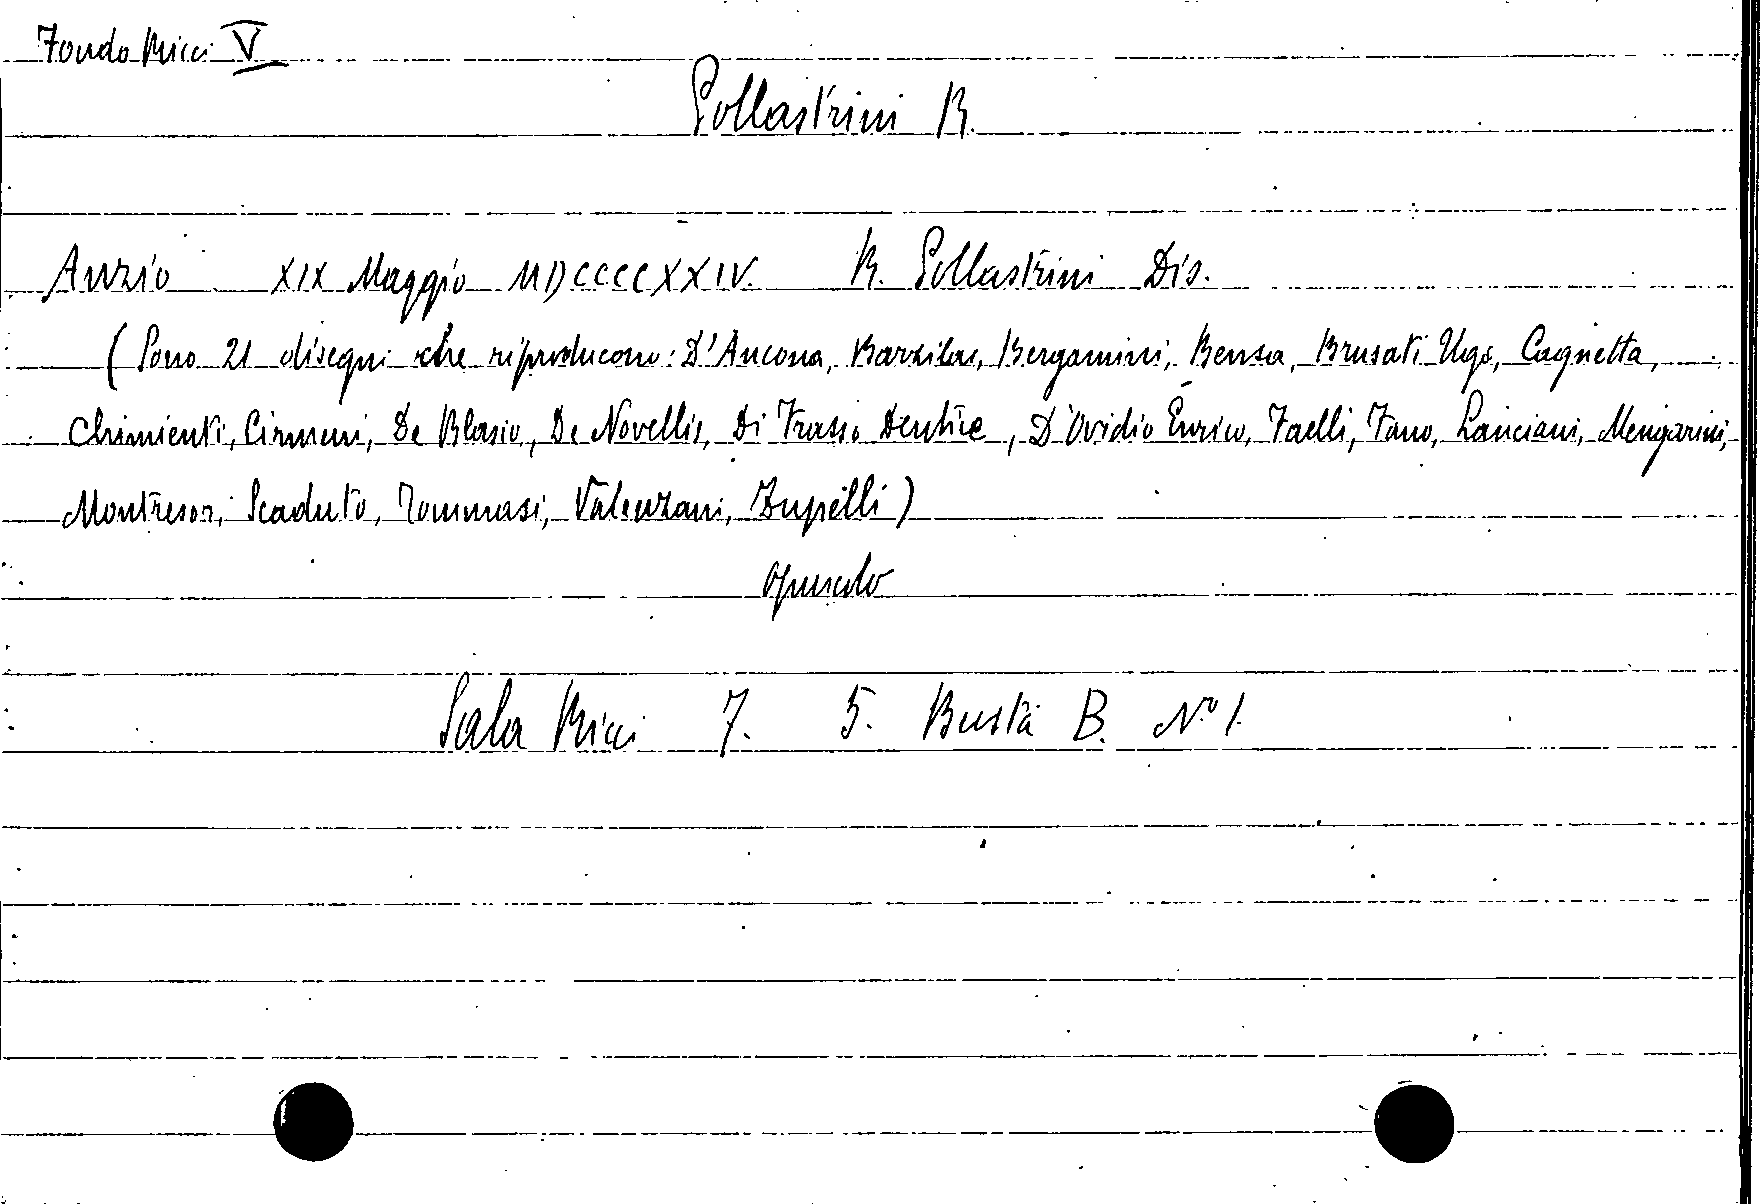 Fondo Ricci V
Pollastrini R.
Anzio XIX Maggio MDCCCCXXIV. R. Pollastrini Dis.
(Sono 21 disegni che riproducono: D'Ancona, Barzilai, Bergamini, Bensa, Brusati Ugo, Cagnetta,
Chimienti, Cirmeni, De Blasio, De Novellis, Di Frasso Dentice, D'Ovidio Enrico, Faelli, Fano, Lanciani, Mengarini,
Montresor, Scaduto, Tommasi, Valenzani, Zupelli)
opuscolo
Sala Ricci 7. 5. Busta B. N° 1.